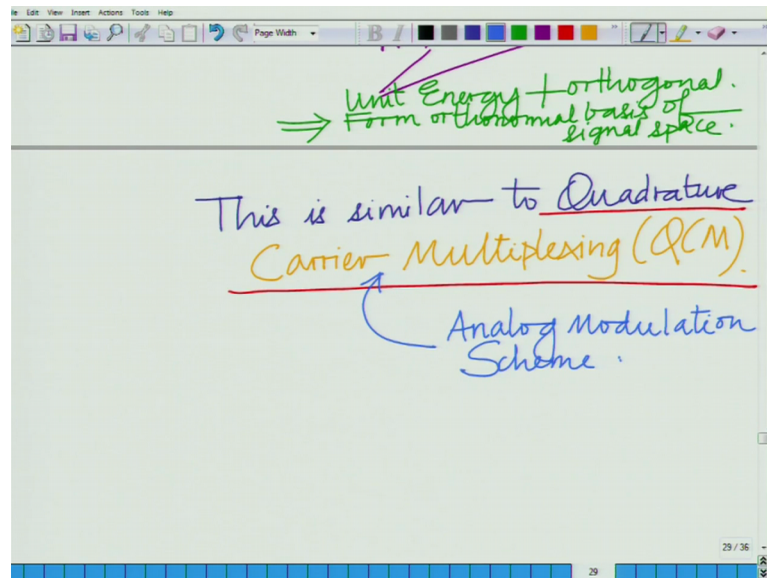 le Edit View Insert Actions Tools Help
Page Width
B I
Unit Energy + orthogonal.
⇒ Form orthonormal basis of
signal space.
This is similar to Quadrature
Carrier Multiplexing (QCM).
Analog Modulation
Scheme.
29 / 36
29